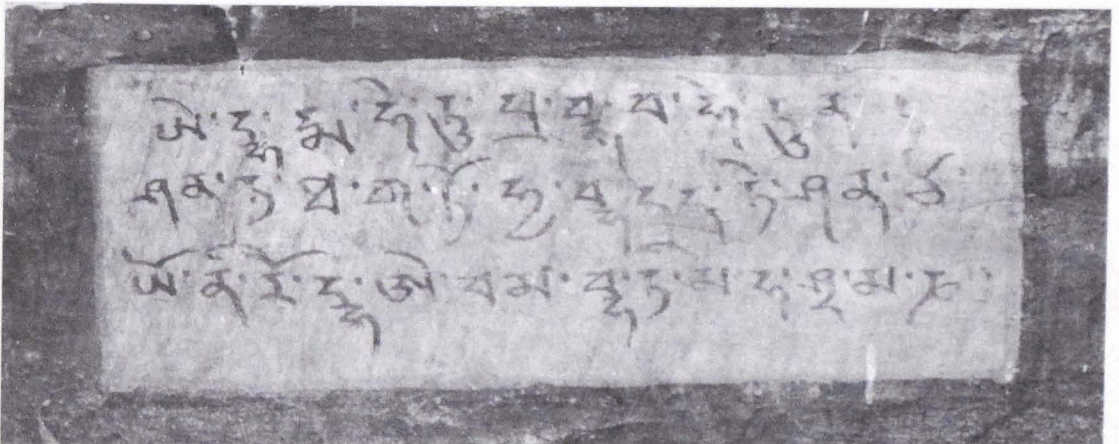 ཡེ་དྷ་རྨ་ཧེ་ཏུ་པྲ་བྷ་བ་ཧེ་ཏུ་ན་
ཤན་ཏེ་ཐ་ག་ཏོ་ཧྱ་བྷ་ད་ད་ཏེ་ཤན་ཙ་
ཡོ་ནི་རོ་དྷ་ཨེ་བམ་བྷ་ཏི་མ་ཧ་ཤྲ་མ་ཎ་